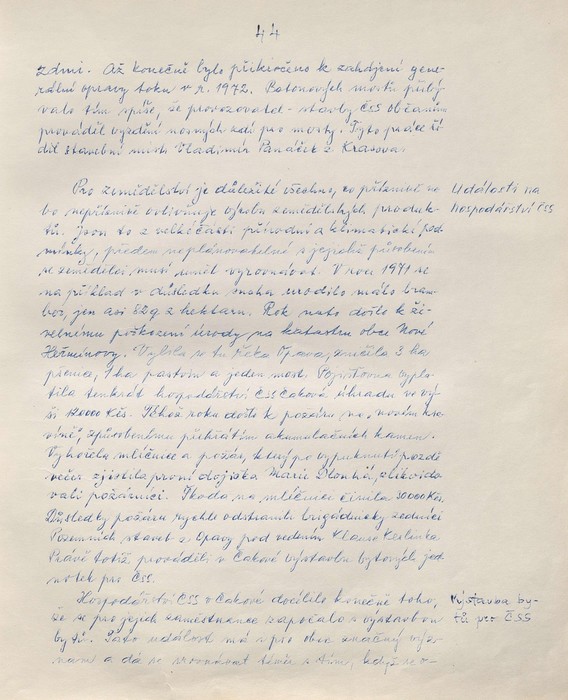 44
zdmi. Až konečně bylo přikročeno k zahájení gene-
rální opravy toku v r. 1972. Betonových mostů přibý-
valo tím spíše, že provozovatel - stavby ČSS Občanům
prováděl vyzdění nosných zdí pro mosty. Tyto práce ří-
dil stavební mistr Vladimír Panáček z Krasova.
Pro zemědělství je důležité všechno, co příznivě ne-
bo nepříznivě ovlivňuje výrobu zemědělských produk-
tů. Jsou to z velké části přírodní a klimatické pod-
mínky, předem neplánovatelné s jejichž působením
se zemědělci musí umět vyrovnávat. V roce 1971 se
na příklad v důsledku sucha urodilo málo bram-
bor, jen asi 82 q z hektaru. Rok nato došlo k ži-
velnému poškození úrody na katastru obce Nové
Heřminovy. Vylila se tu řeka Opava, zničila 3 ha
prosa, 1 ha pastvin a jeden most. Pojišťovna vypla-
tila tenkrát hospodářství ČSS Čaková úhradu ve vý-
ši 12000 Kčs. Téhož roku došlo k požáru na „novém kra-
víně", způsobenému přehřátím akumulačních kamen.
Vyhořela mléčnice a požár, který po vypuknutí pozdě
večer zjistila první dojička Marie Dlouhá, zlikvido-
vali požárníci. Škoda na mléčnici činila 30000 Kčs.
Důsledky požáru rychle odstranili brigádnicky zedníci
Pozemních staveb z Opavy pod vedením
Právě totiž prováděli v Čakové výstavbu bytových jed-
notek pro ČSS.
Hospodářství ČSS v Čakové docílilo konečně toho,
že se pro jejich zaměstnance započalo s výstavbou
bytů. Tato událost má i pro obec značný výz-
nam a dá se srovnávat téměř s tím, když se o-
Události na
hospodářství ČSS
Výstavba by-
tů pro ČSS